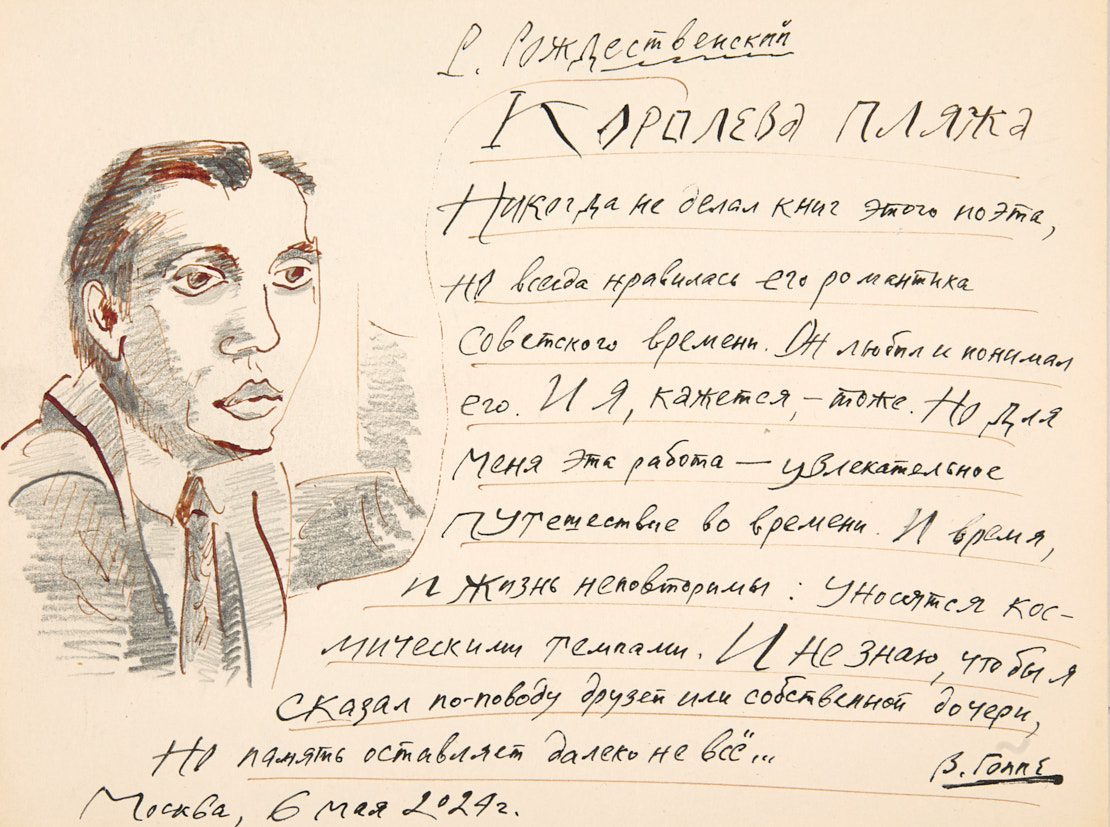 Р. Рождественский
Королева пляжа
Никогда не делал книг этого поэта,
но всегда нравилась его романтика
советского времени. Он любил и понимал
его. И я, кажется, – тоже. Но для
меня эта работа — увлекательное
путешествие во времени. И время,
и жизнь неповторимы: уносятся кос-
мическими темпами. И не знаю, что бы я
сказал по-поводу друзей или собственной дочери,
Но память оставляет далеко не всё...
В. Гоппе
Москва, 6 мая 2024г.